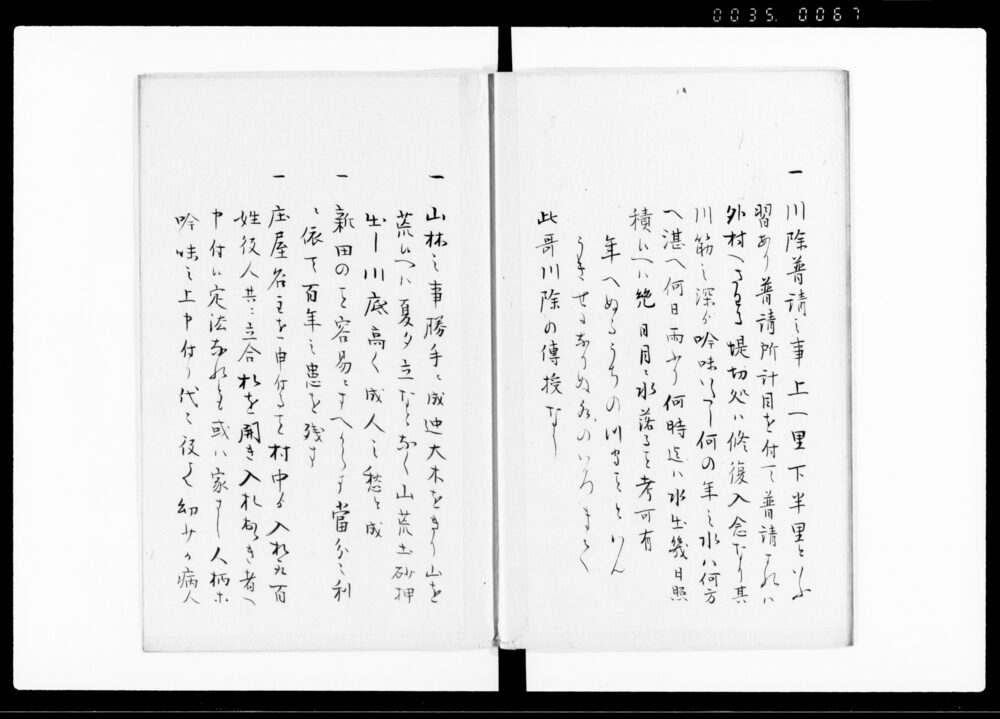 0035. 0067
一 川除普請之事上一里下半里といふ
習あり普請所計目を付て普請すれハ
外村へさはる堤切処ハ修復入念なり其
川筋之深サ吟味いたし何の年之水ハ何方
へ湛へ何日雨ふり何時迄ハ水出幾日照
積いへハ絶目月ニ水落ること考可有
年へぬるうちの川せことといへん
うきせになりぬ水のいろまして
此哥川除の傳授なり
一 山林之事勝手ニ成迚大木をきり山を
荒いへハ夏夕立なとあらく山荒土砂押
出し川底高く成人之愁と成
一 新田のこと容易ニすへからす當分之利
ニ依て百年之患を残す
一 庄屋名主を申付ること村中より入札為百
姓役人共ニ立合札を開き入札多き者へ
申付ハ定法なれとも或ハ家よし人柄ホ
吟味之上申付り代々役とも幼少か病人